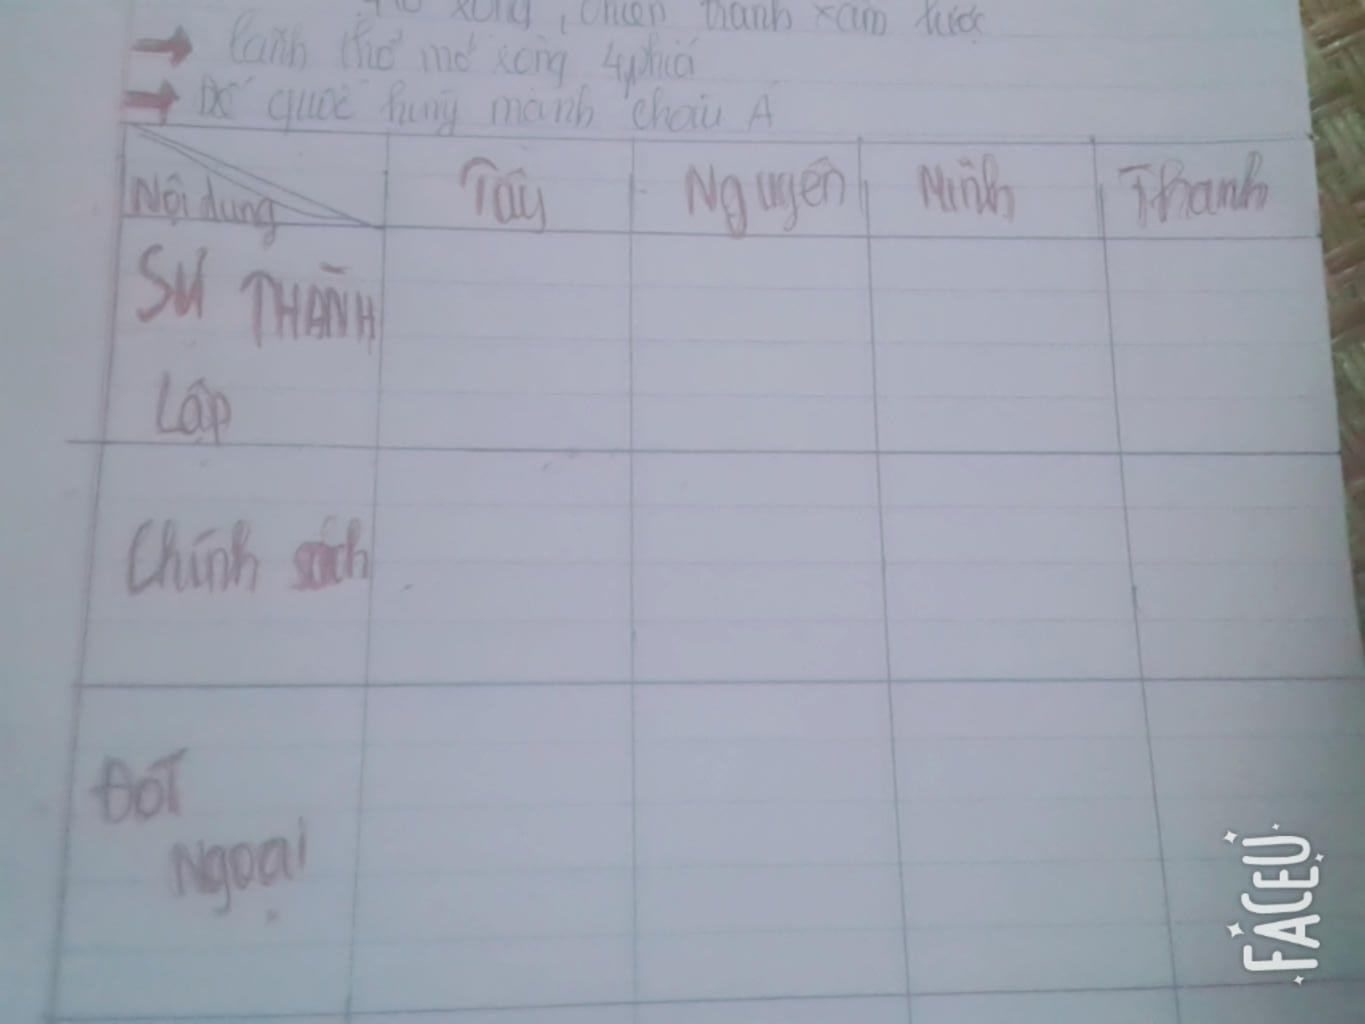 xông, chiến tranh xâm lược
lãnh thổ mở rộng 4 phía
Đế quốc hùng mạnh châu Á
Nội dung
Tây
Nguyên
Minh
Thanh
SỰ THÀNH
Lập
Chính sách
ĐỐI
Ngoại
FACEU